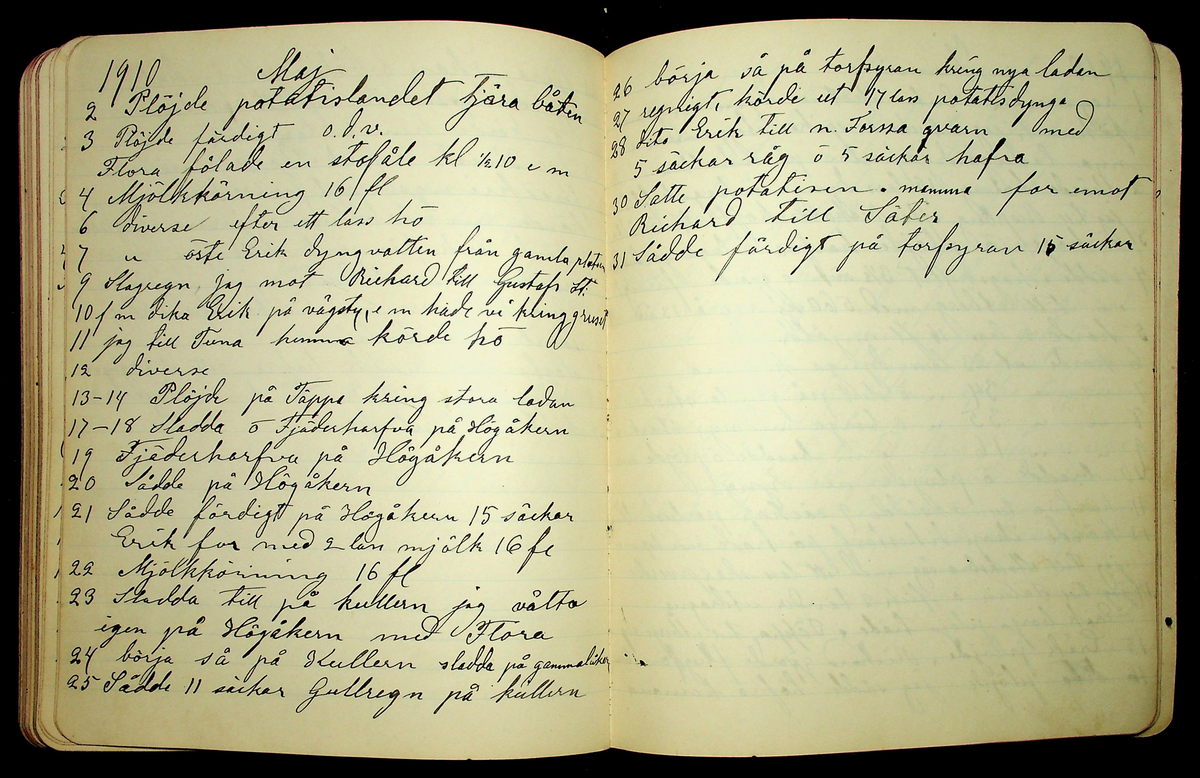 1910 Maj
2 Plöjde potatislandet tjära båten
3 Plöjde färdigt o.d.v.
Flora fölade en stofåle kl ½10 e m
4 Mjölkkörning 16 fl
6 diverse efter ett lass hö
7 " öste Erik dyngvatten från gamla platsen
9 Slagregn, jag mot Richard till Gustafs St.
10 f m dika Erik på vägsty, e m hade vi kring gruset
11 jag till Tuna hemma körde hö
12 diverse
13-14 Plöjde på Täppa kring stora ladan
17-18 Sladda o Fjäderharfva på Högåkern
19 Fjäderharfva på Högåkern
20 Sådde på Högåkern
21 Sådde färdigt på Högåkern 15 säckar
Erik for med 2 lass mjölk 16 fl
22 Mjölkkörning 16 fl
23 Sladda till på kullern jag välta
igen på Högåkern med Flora
24 börja så på Kullern sladda på gammalåker
25 Sådde 11 säckar Gullregn på kullern
26 börja så på torfsyran kring nya ladan
27 regnigt, körde ut 17 lass potatisdynga
28 dito Erik till n. Forssa qvarn med
5 säckar råg o 5 säckar hafra
30 Satte potatisen. mamma for emot
Richard till Säter
31 Sådde färdigt på torfsyran 15 säckar